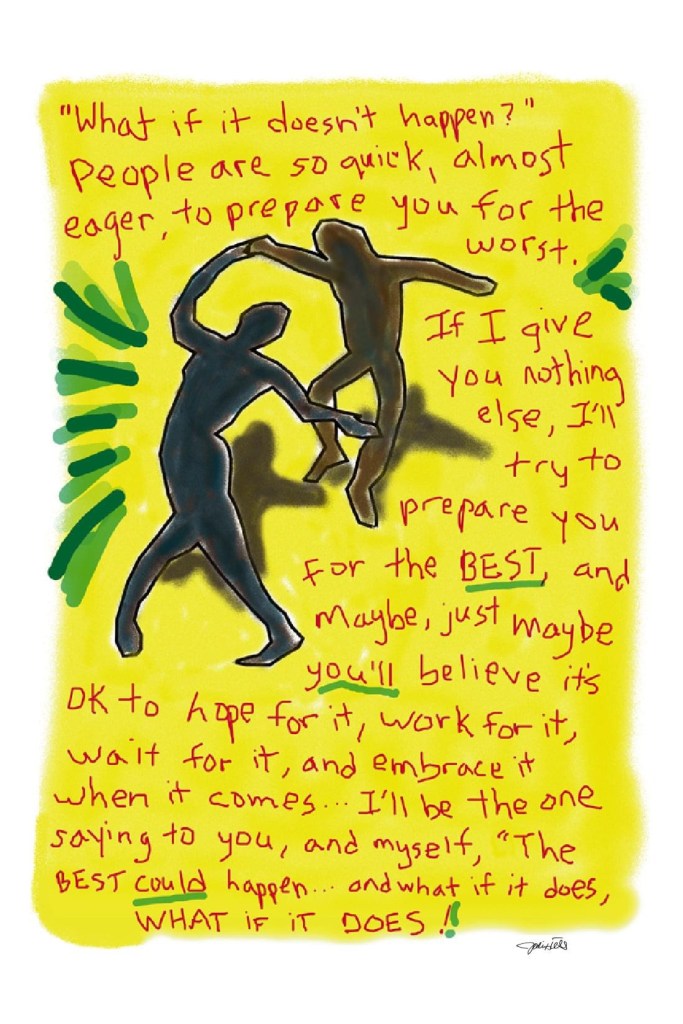 "What if it doesn't happen?"
People are so quick, almost
eager, to prepare you for the
worst.
If I give
you nothing
else, I'll
try to
prepare you
for the BEST, and
maybe, just maybe
you'll believe it's
OK to hope for it, work for it,
wait for it, and embrace it
when it comes... I'll be the one
saying to you, and myself, "The
BEST could happen... and what if it does,
WHAT IF IT DOES!